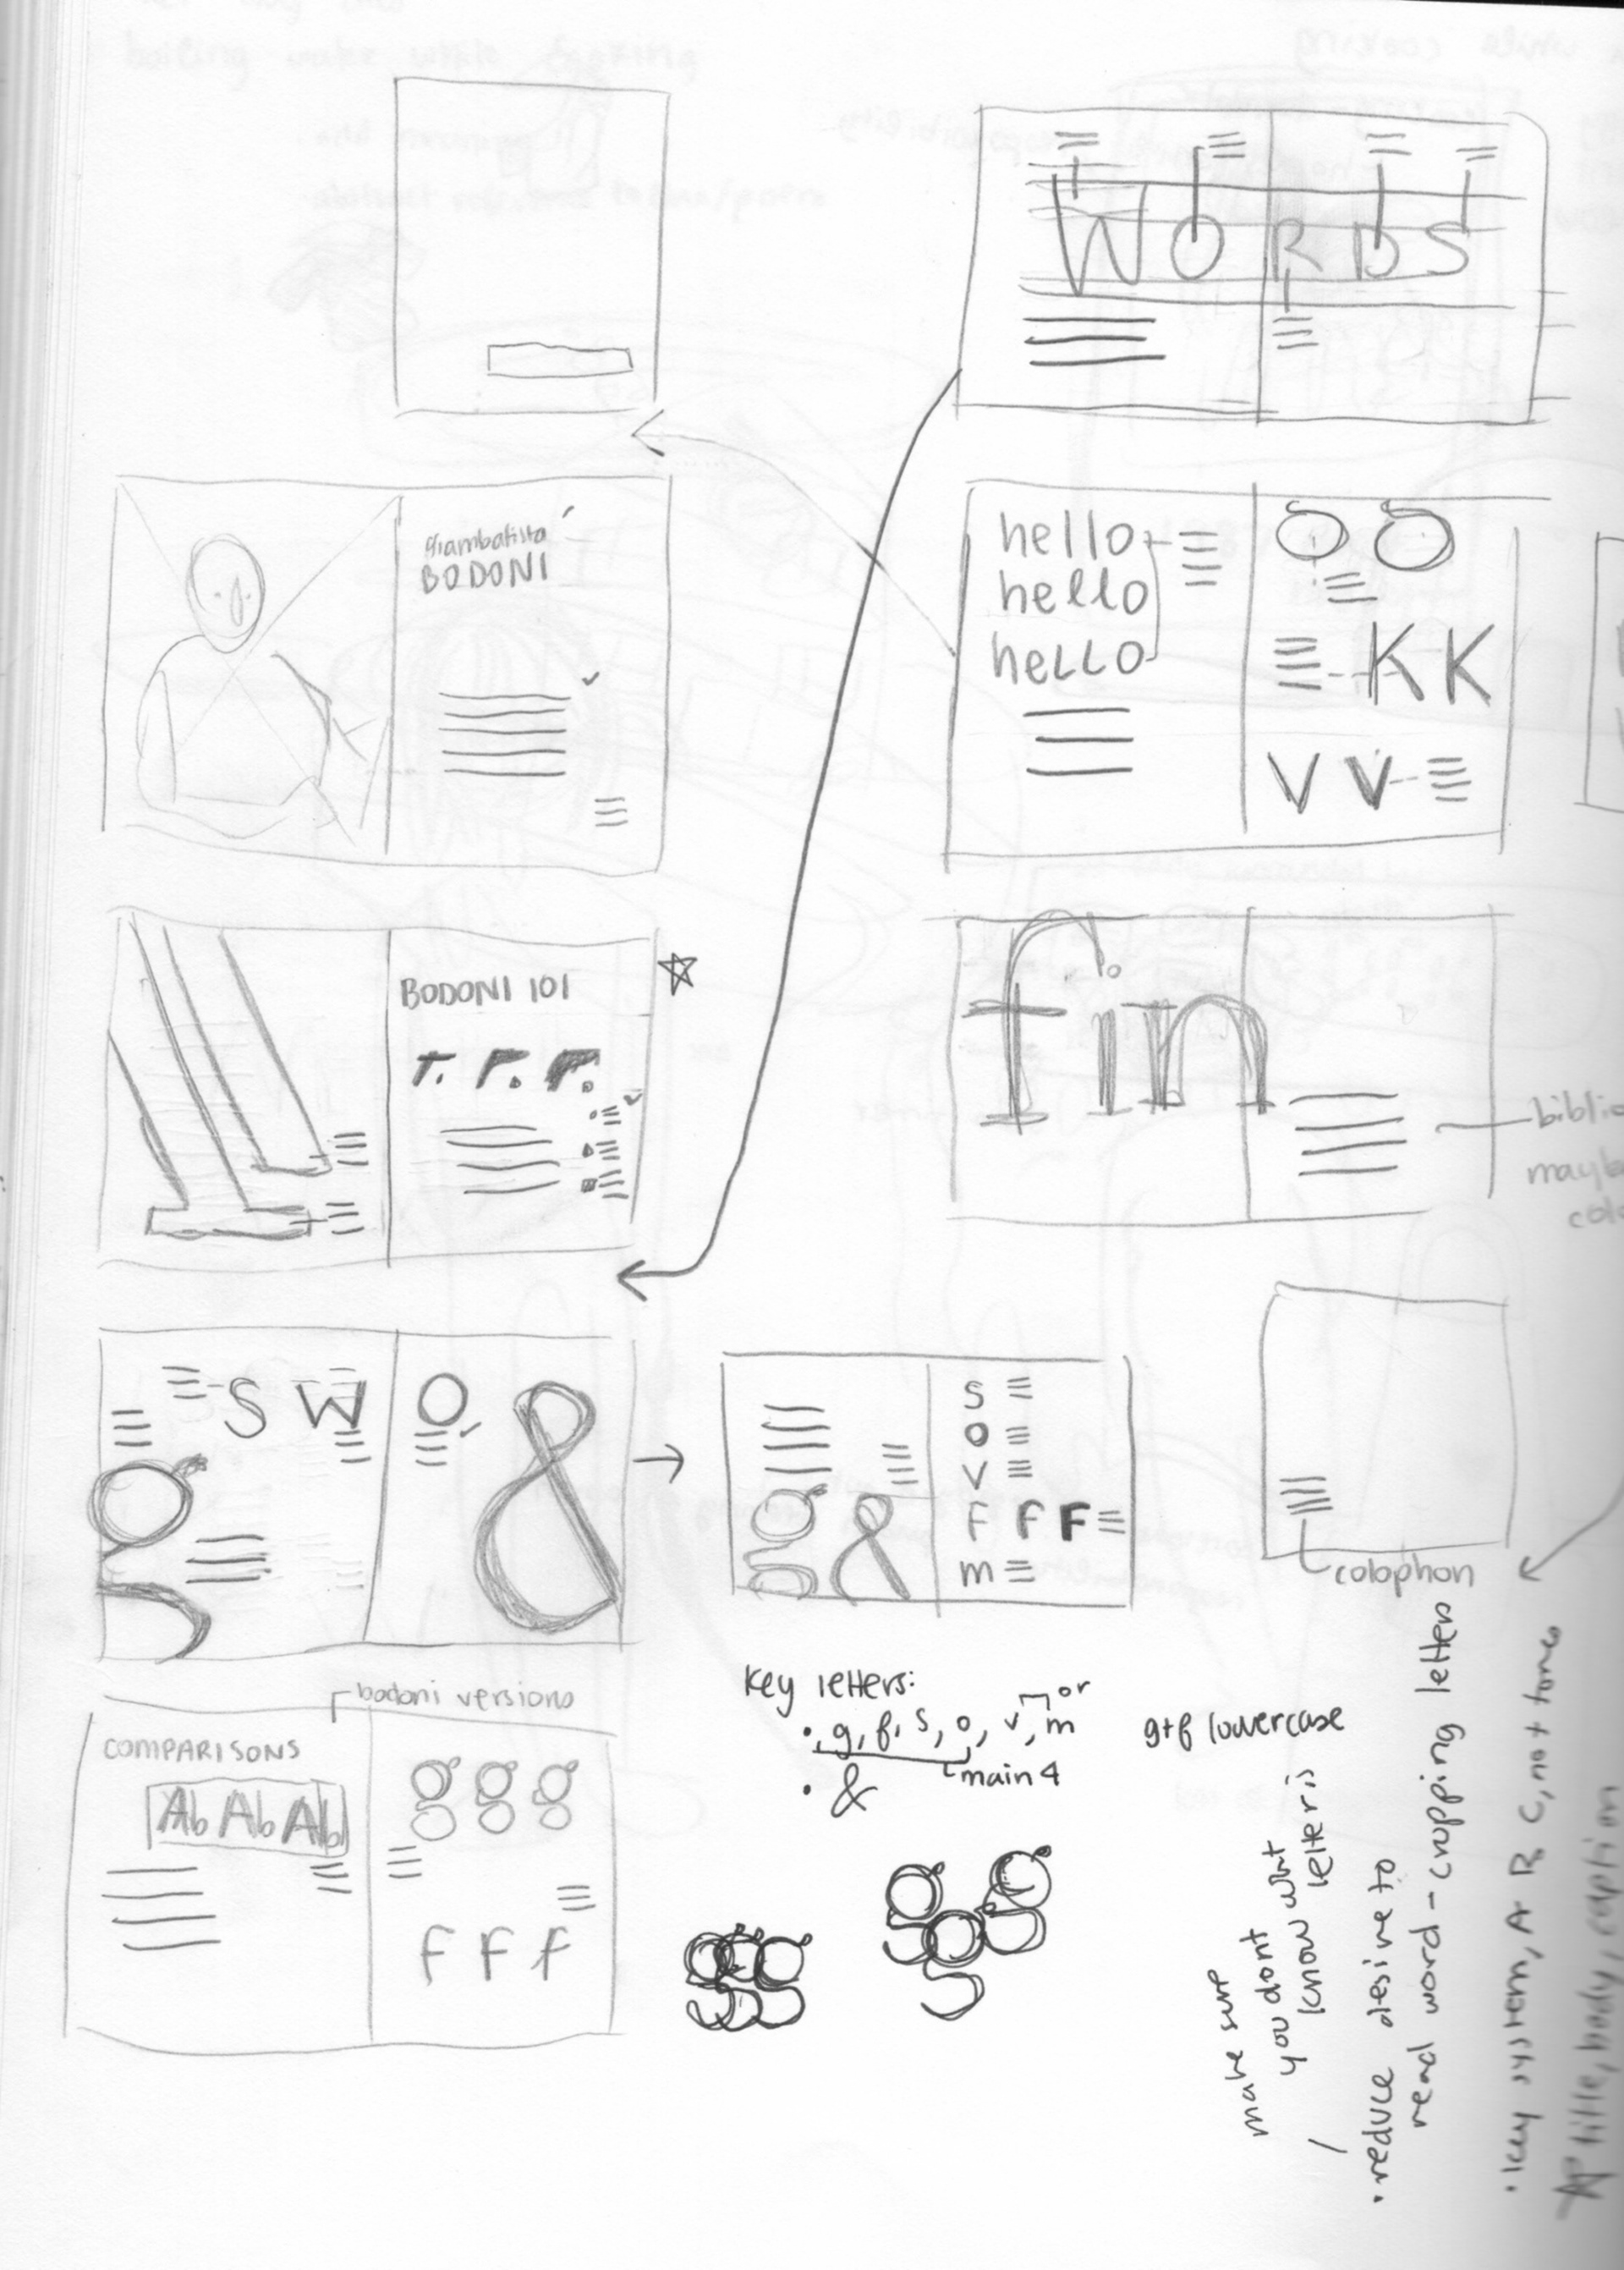 WORDS
giambatista
BODONI
hello
hello
heLLO
O O
K K
V V
BODONI 101
T. F. F.
fin
biblio
mayb
colo
S W O &
g
g &
S
O
V
F F F
m
colophon
bodoni versions
COMPARISONS
Ab Ab Ab
g g g
F F f
key letters:
• g, f, s, o, v, m
or
main 4
• &
g+f lowercase
make sure
you dont
know what
letter is
• reduce desire to
read word - cropping letters
• key system, A B C, not tones
title, body, caption